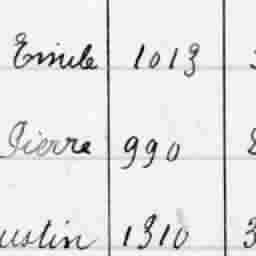 Emile 1013
Pierre 990
ustin 1310 3